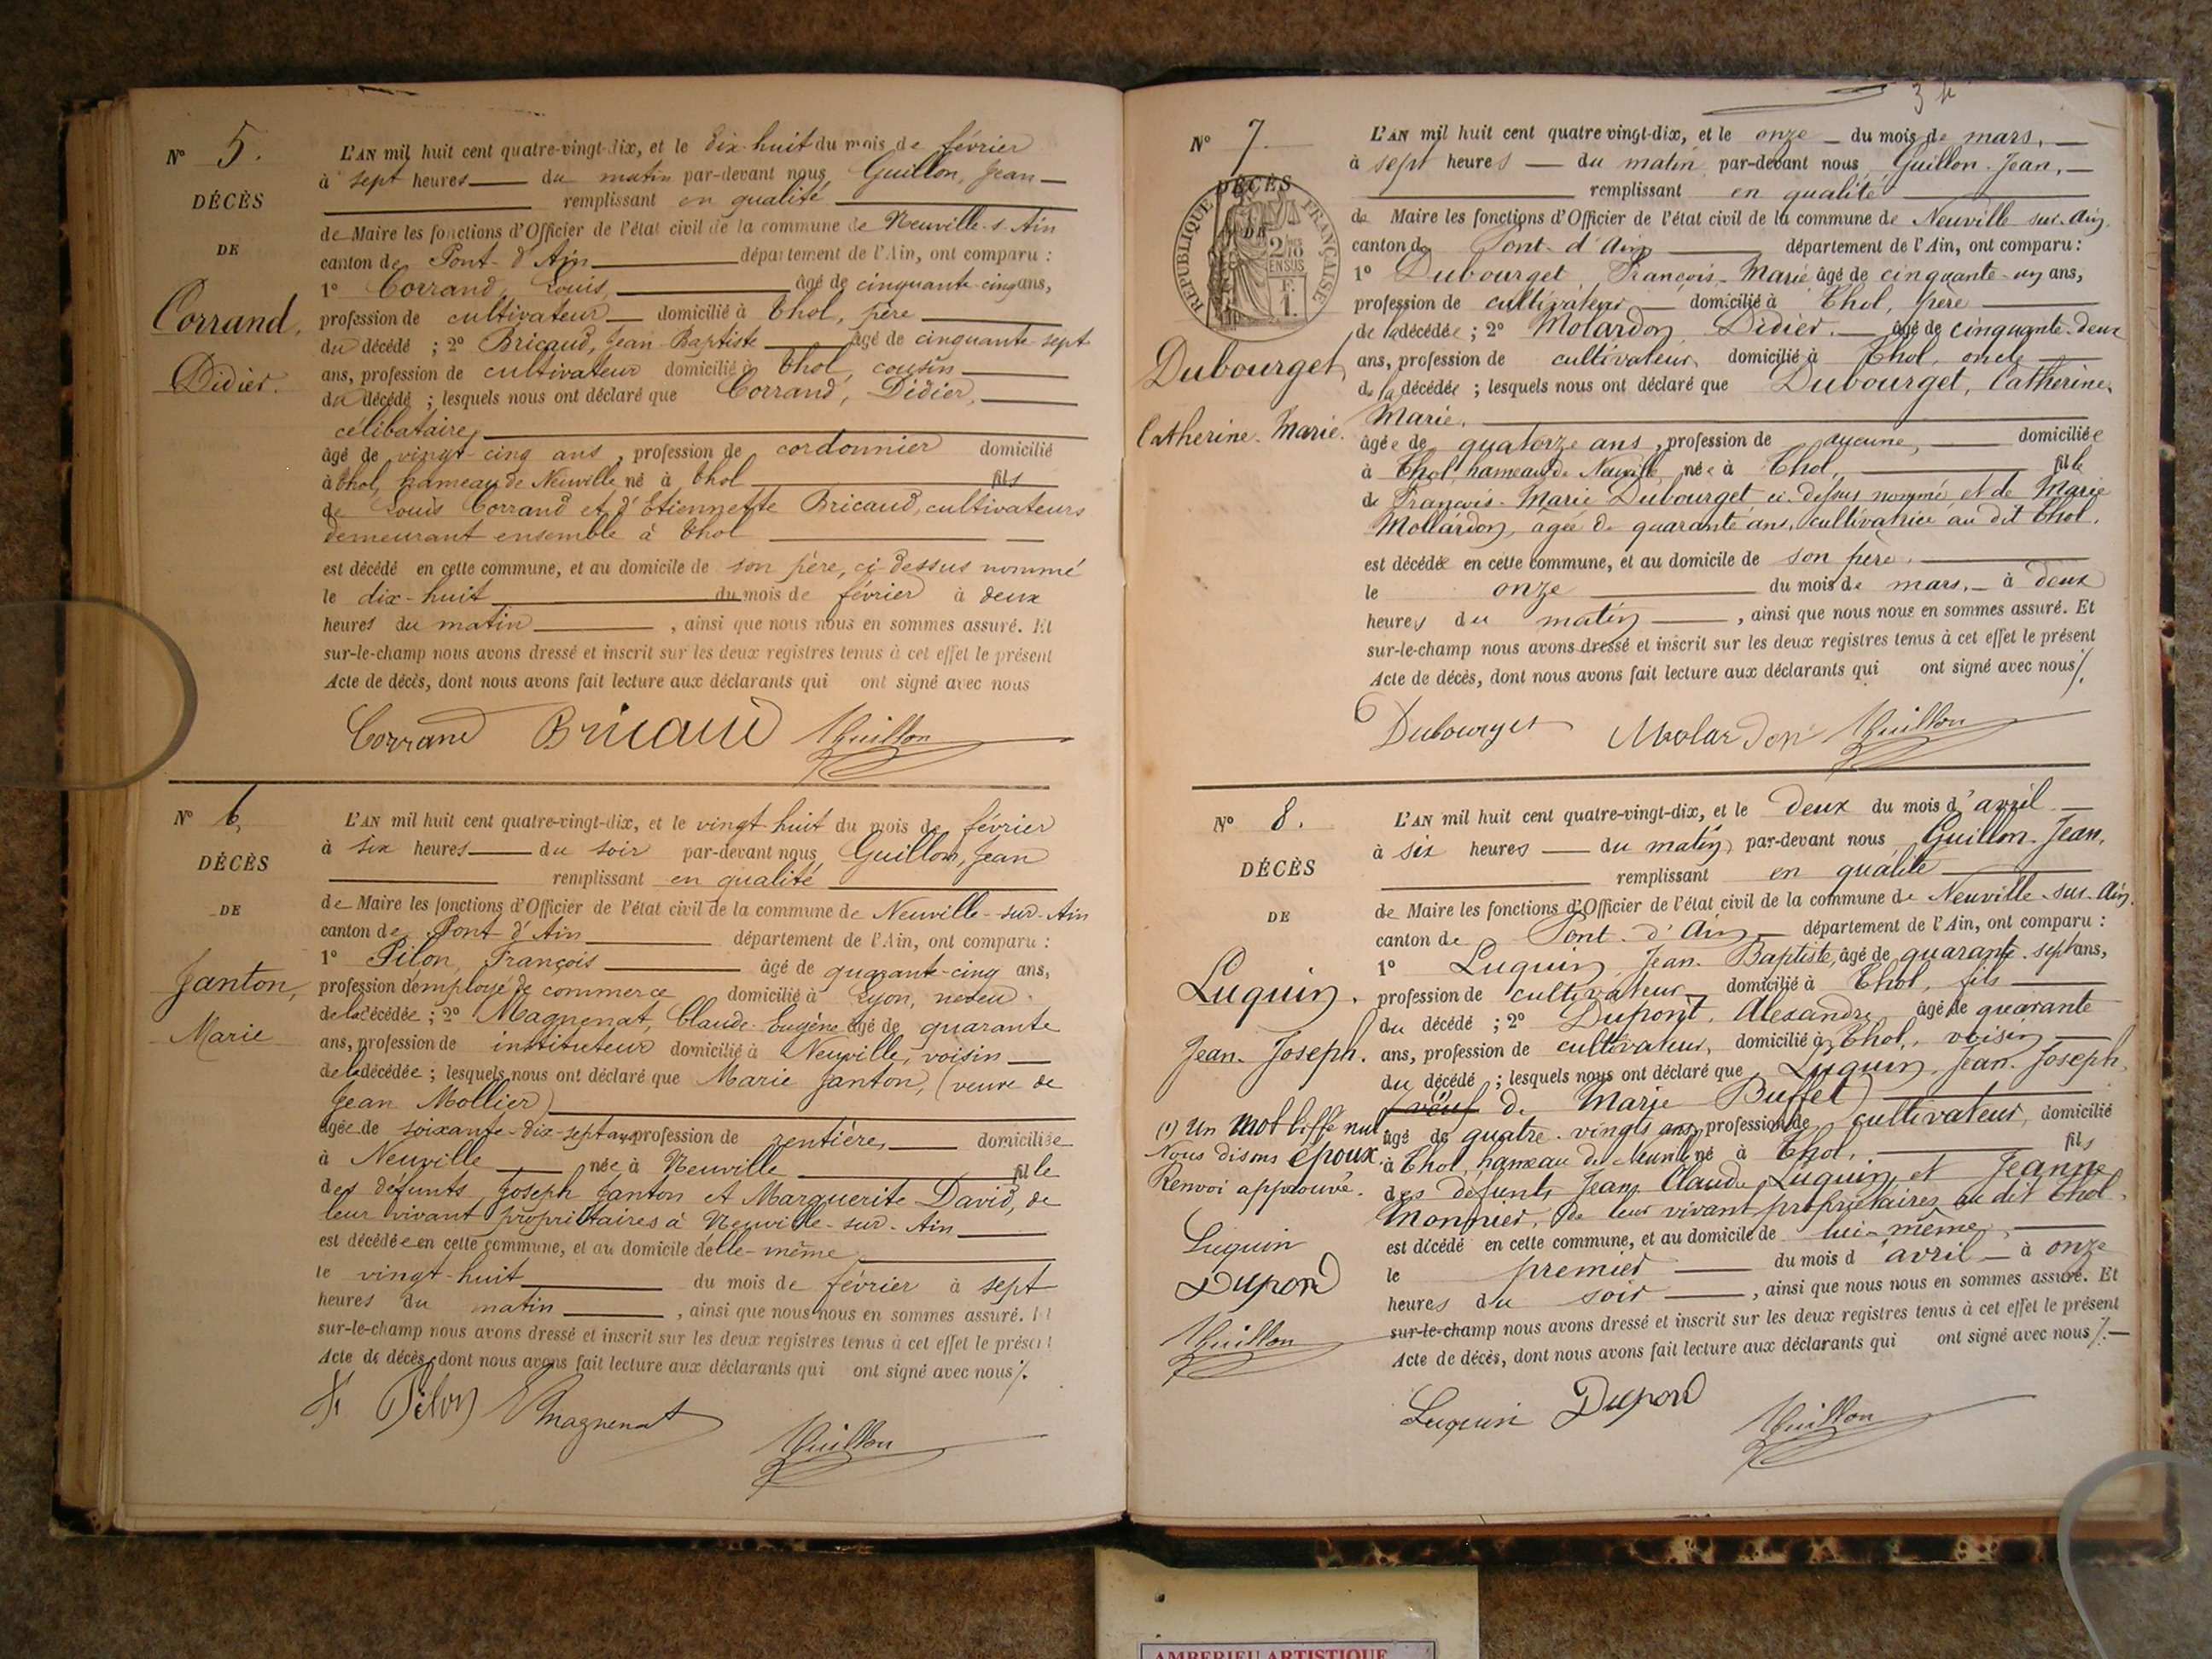 N° 5.
DÉCÈS
DE
Corrand,
Didier.
L'AN mil huit cent quatre-vingt-dix, et le dix-huit du mois de février
à sept heures du matin par-devant nous Guillon, Jean
remplissant en qualité
de Maire les fonctions d'Officier de l'état civil de la commune de Neuville-s-Ain
canton de Pont-d'Ain département de l'Ain, ont comparu :
1° Corrand, Louis, âgé de cinquante-cinq ans,
profession de cultivateur domicilié à Thol, père
du décédé ; 2° Bricaud, Jean-Baptiste âgé de cinquante-sept
ans, profession de cultivateur domicilié à Thol, cousin
du décédé ; lesquels nous ont déclaré que Corrand, Didier,
célibataire,
âgé de vingt-cinq ans, profession de cordonnier domicilié
à Thol, hameau de Neuville né à Thol fils
de Louis Corrand et d'Etiennette Bricaud, cultivateurs
demeurant ensemble à Thol
est décédé en cette commune, et au domicile de son père, ci-dessus nommé
le dix-huit du mois de février à deux
heures du matin, ainsi que nous nous en sommes assuré. Et
sur-le-champ nous avons dressé et inscrit sur les deux registres tenus à cet effet le présent
Acte de décès, dont nous avons fait lecture aux déclarants qui ont signé avec nous
Corrand Bricaud Guillon
N° 6.
DÉCÈS
DE
Janton,
Marie
L'AN mil huit cent quatre-vingt-dix, et le vingt-huit du mois de février
à six heures du soir par-devant nous Guillon, Jean
remplissant en qualité
de Maire les fonctions d'Officier de l'état civil de la commune de Neuville-sur-Ain
canton de Pont d'Ain département de l'Ain, ont comparu :
1° Pilon, François âgé de quarante-cinq ans,
profession d'employé de commerce domicilié à Lyon, neveu
de la décédée ; 2° Magnenat, Claude-Eugène âgé de quarante
ans, profession de instituteur domicilié à Neuville, voisin
de la décédée ; lesquels nous ont déclaré que Marie Janton, (veuve de
Jean Mollier)
âgée de soixante-dix-sept ans profession de rentière, domiciliée
à Neuville née à Neuville fille
des défunts Joseph Janton et Marguerite David, de
leur vivant propriétaires à Neuville-sur-Ain
est décédée en cette commune, et au domicile d'elle-même
le vingt-huit du mois de février à sept
heures du matin, ainsi que nous nous en sommes assuré. Et
sur-le-champ nous avons dressé et inscrit sur les deux registres tenus à cet effet le présent
Acte de décès, dont nous avons fait lecture aux déclarants qui ont signé avec nous %.
F. Pilon Magnenat Guillon
N° 7.
DÉCÈS
DE
RÉPUBLIQUE FRANÇAISE
2/10 EN SUS
F. 1.
Dubourget,
Catherine-Marie.
L'AN mil huit cent quatre vingt-dix, et le onze du mois de mars,
à sept heures du matin par-devant nous Guillon-Jean,
remplissant en qualité
de Maire les fonctions d'Officier de l'état civil de la commune de Neuville sur-Ain,
canton de Pont-d'Ain département de l'Ain, ont comparu :
1° Dubourget, François-Marie âgé de cinquante-un ans,
profession de cultivateur domicilié à Thol, père
de la décédée ; 2° Molardon, Didier. âgé de cinquante-deux
ans, profession de cultivateur domicilié à Thol, oncle
de la décédée ; lesquels nous ont déclaré que Dubourget, Catherine,
Marie.
âgée de quatorze ans, profession de aucune, domiciliée
à Thol, hameau de Neuville, née à Thol, fille
de François-Marie Dubourget ci-dessus nommé et de Marie
Mollardon, agée de quarante ans, cultivatrice au dit Thol.
est décédée en cette commune, et au domicile de son père.
le onze du mois de mars, à deux
heures du matin, ainsi que nous nous en sommes assuré. Et
sur-le-champ nous avons dressé et inscrit sur les deux registres tenus à cet effet le présent
Acte de décès, dont nous avons fait lecture aux déclarants qui ont signé avec nous %.
Dubourget Molardon Guillon
N° 8.
DÉCÈS
DE
Luquin.
Jean-Joseph.
L'AN mil huit cent quatre-vingt-dix, et le deux du mois d'avril
à six heures du matin par-devant nous Guillon-Jean,
remplissant en qualité
de Maire les fonctions d'Officier de l'état civil de la commune de Neuville-sur-Ain,
canton de Pont-d'Ain département de l'Ain, ont comparu :
1° Luquin, Jean-Baptiste, âgé de quarante-sept ans,
profession de cultivateur domicilié à Thol, fils
du décédé ; 2° Dupont, Alexandre âgé de quarante
ans, profession de cultivateur, domicilié à Thol, voisin
du décédé ; lesquels nous ont déclaré que Luquin, Jean-Joseph,
(veuf de Marie Buffet)
âgé de quatre-vingts ans, profession de cultivateur, domicilié
à Thol, hameau de Neuville né à Thol, fils
des défunts Jean Claude Luquin et Jeanne
Monnier, de leur vivant propriétaires au dit Thol.
est décédé en cette commune, et au domicile de lui-même,
le premier du mois d'avril à onze
heures du soir, ainsi que nous nous en sommes assuré. Et
sur-le-champ nous avons dressé et inscrit sur les deux registres tenus à cet effet le présent
Acte de décès, dont nous avons fait lecture aux déclarants qui ont signé avec nous %.
(1) Un mot biffé nul
Nous disons époux.
Renvoi approuvé.
Luquin
Dupond
Guillon
Luquin Dupond Guillon
AMBERIEU ARTISTIQUE